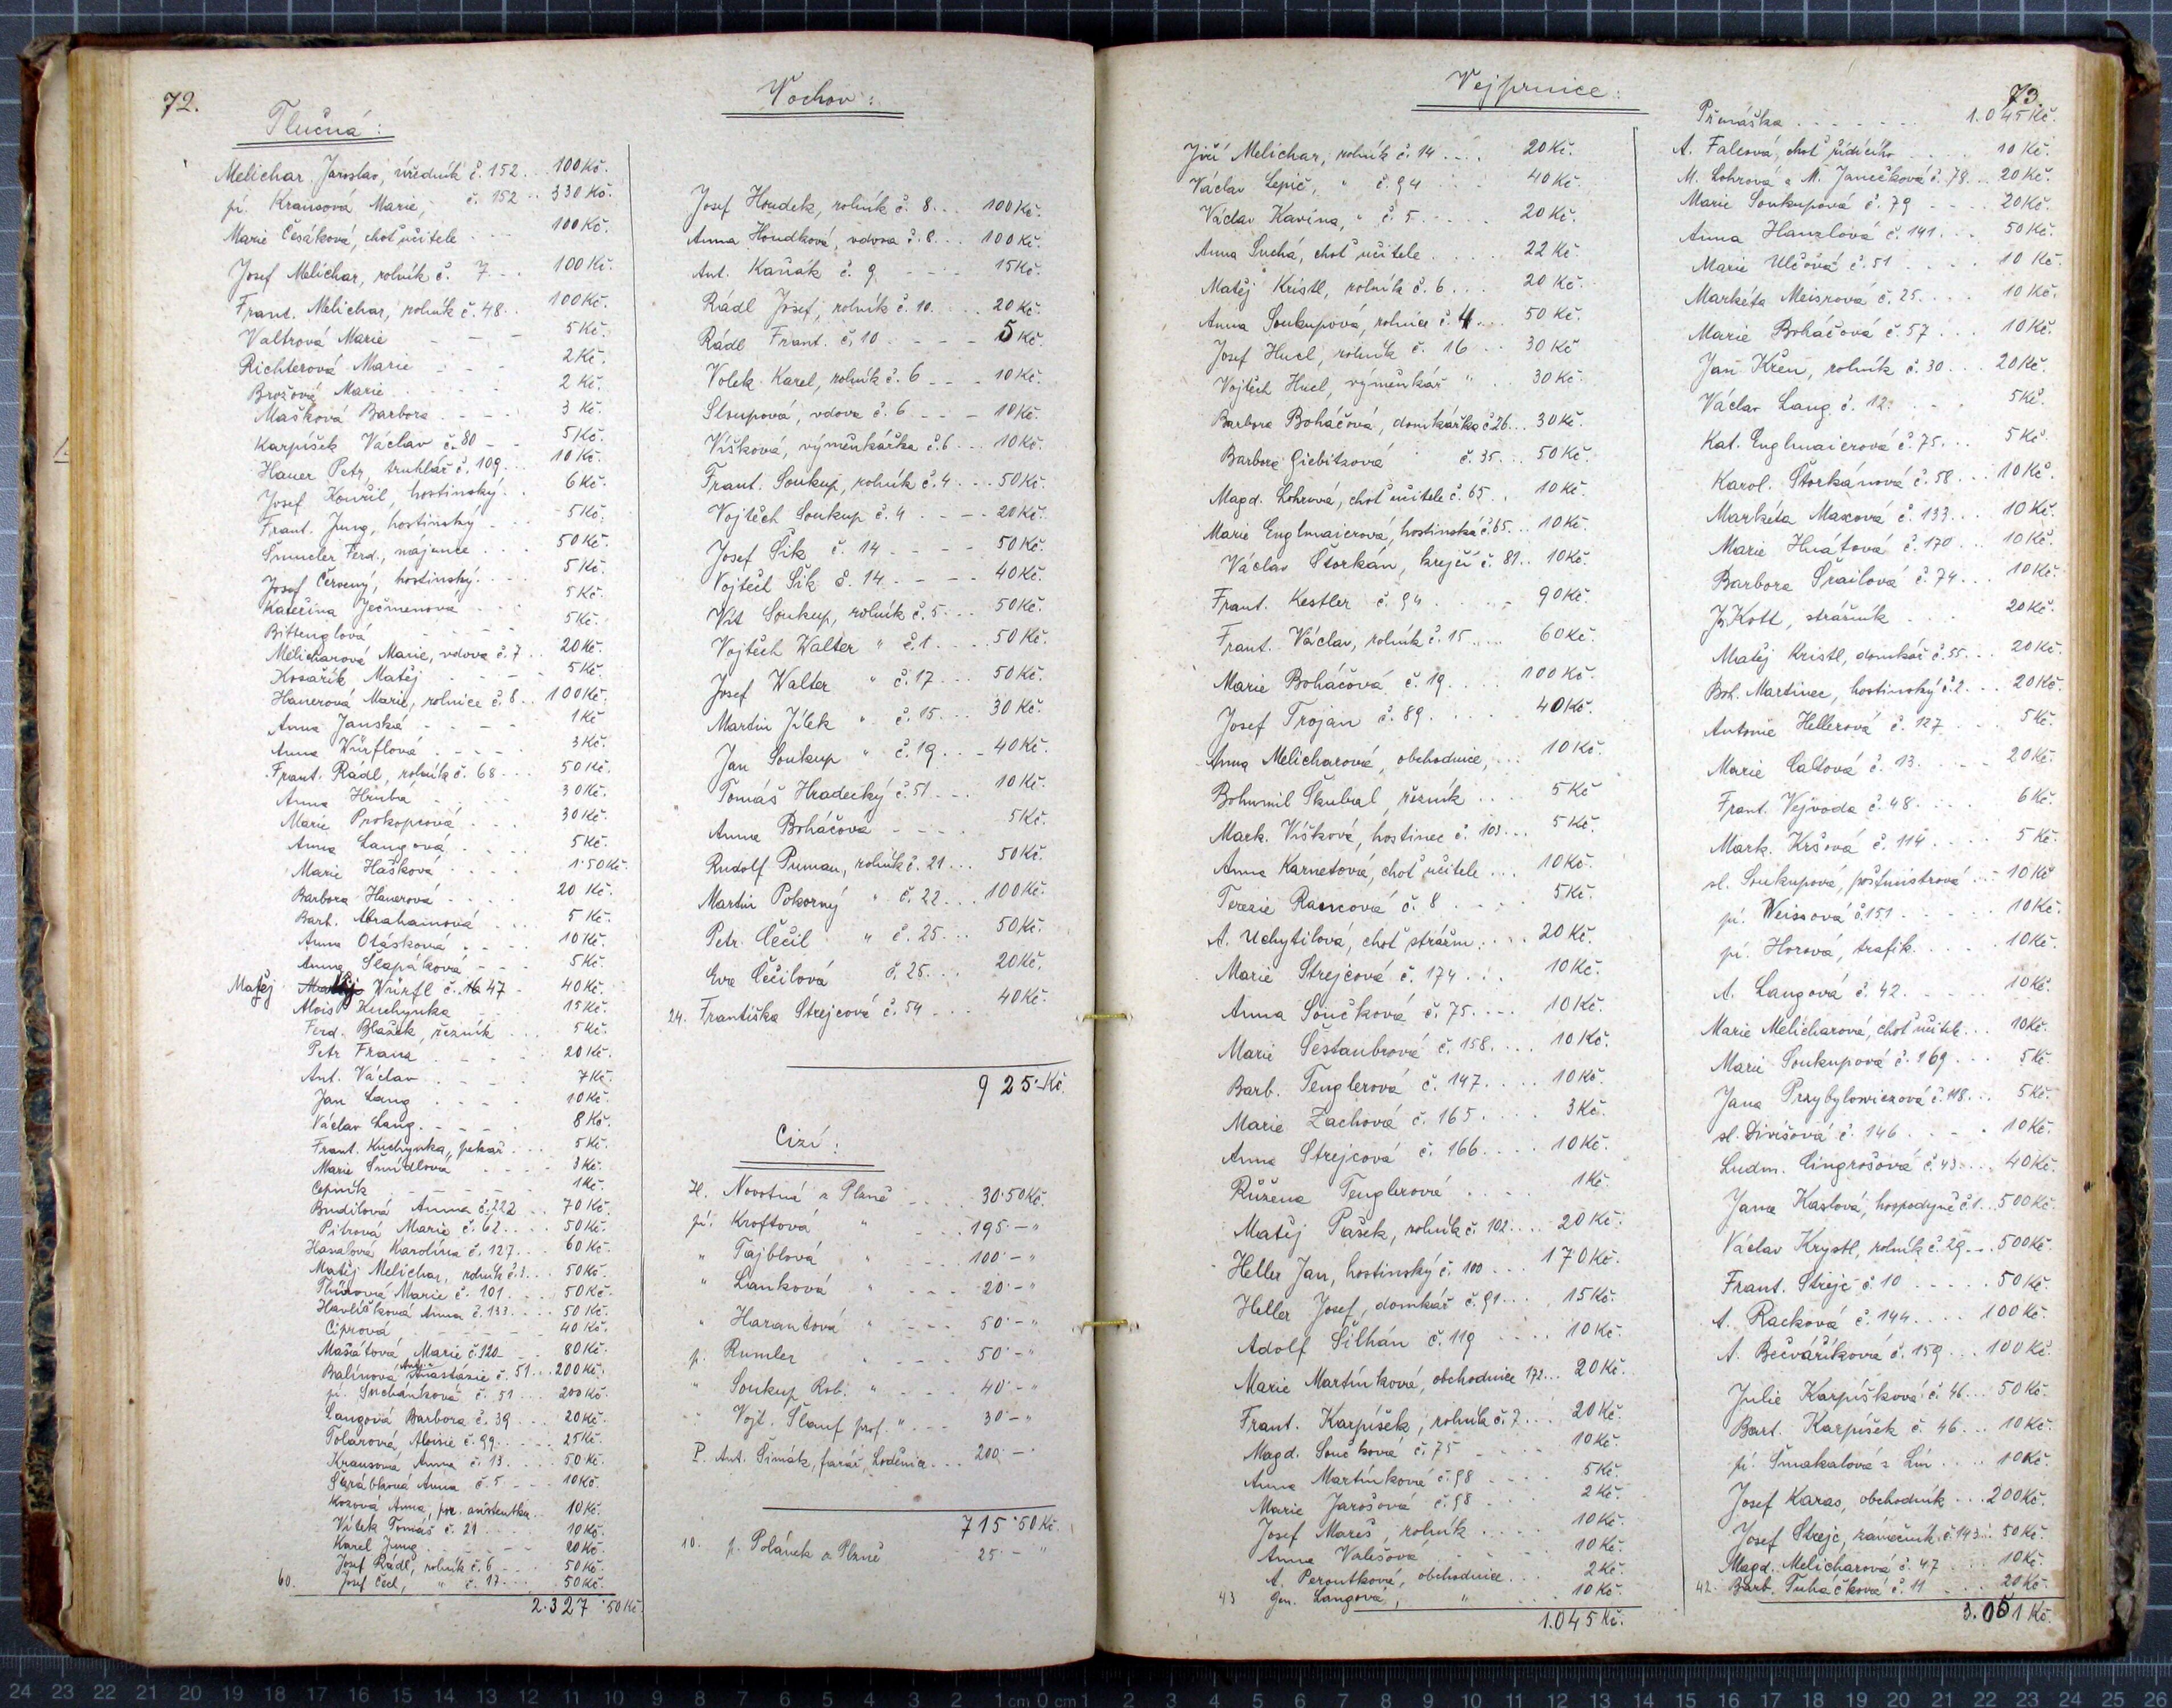 72.
Tlučná:
Melichar Jaroslav, úředník č. 152 .. 100 Kč.
pí. Krausová Marie, č. 152 .. 330 Kč.
Marie Česáková, choť učitele - - 100 Kč.
Josef Melichar, rolník č. 7 ... 100 Kč.
Frant. Melichar, rolník č. 48 .. 100 Kč.
Valtrová Marie - - - 5 Kč.
Richterová Marie . - - 2 Kč.
Brožová Marie . . . . 2 Kč.
Mašková Barbora . - - . 3 Kč.
Karpíšek Václav č. 80 - - 5 Kč.
Hauer Petr, truhlář č. 109 .. 10 Kč.
Josef Kouřil, hostinský . . 6 Kč.
Frant. Jung, hostinský - . . 5 Kč.
Šmucler Ferd., nájemce . . . 50 Kč.
Josef Červený, hostinský . . . 5 Kč.
Kateřina Ječmenová . . . 5 Kč.
Bittenglová - - - - 5 Kč.
Melicharová Marie, vdova č. 7 .. 20 Kč.
Kosařík Matěj - - - - 5 Kč.
Hanerová Marie, rolnice č. 8 .. 100 Kč.
Anna Janská - - - - 1 Kč
Anna Würflová . - - - . 3 Kč.
Frant. Rádl, rolník č. 68 ... 50 Kč.
Anna Hrubá - . . . . 30 Kč.
Marie Prokopcová . . . . 30 Kč.
Anna Langová . . . . 5 Kč.
Marie Hašková . . . . 1·50 Kč.
Barbora Hanerová - . . . 20 Kč.
Barb. Abrahamová . . . 5 Kč.
Anna Otásková . . . . 10 Kč.
Anna Šlapáková - - - 5 Kč.
Matěj Würfl č. 47 - 40 Kč.
Alois Kuchynka . . . 15 Kč.
Ferd. Blažek, řezník . . . 5 Kč.
Petr Frana . - - - . 20 Kč.
Ant. Václav . . - . . 7 Kč.
Jan Lang . . . . 10 Kč.
Václav Lang . - - - . 8 Kč.
Frant. Kuchynka, pekař . . . 5 Kč.
Marie Šmídlová - - - - 3 Kč.
Cepník - - - - - - 1 Kč.
Budilová Anna č. 222 .. 70 Kč.
Pitrová Marie č. 62 . . . . 50 Kč.
Hasalová Karolína č. 127 . . 60 Kč.
Matěj Melichar, rolník č. 3 ... 50 Kč.
Tůmová Marie č. 101 . . . 50 Kč.
Havlíčková Anna č. 133 . . . 50 Kč.
Ciprová - - - - - 40 Kč.
Mašátová Marie č. 120 - . . 80 Kč.
Balínová Anastázie č. 51 ... 200 Kč.
pí. Suchánková č. 51 . . . 200 Kč.
Langová Barbora č. 39 . . . 20 Kč.
Tolarová Aloisie č. 99 . . . . 25 Kč.
Krausová Anna č. 13 . . . . 50 Kč.
Anna č. 5 . - - . 10 Kč.
Kozová Anna, por. asistentka . 10 Kč.
Vítek Tomáš č. 21 . . . 10 Kč.
Karel Jung . - - - - 20 Kč.
Josef Rádl, rolník č. 6 . . . 50 Kč.
60. Josef Čech, " č. 17 . . . 50 Kč.
2.327·50 Kč.
Vochov:
Josef Houdek, rolník č. 8 ... 100 Kč.
Anna Houdková, vdova č. 8 ... 100 Kč.
Ant. Kaňák č. 9 - - - - 15 Kč.
Rádl Josef, rolník č. 10 . . . 20 Kč.
Rádl Frant. č. 10 - - - - 5 Kč.
Volek Karel, rolník č. 6 - - . 10 Kč.
Sloupová, vdova č. 6 - - - 10 Kč.
Víšková, výměnkářka č. 6 ... 10 Kč.
Frant. Soukup, rolník č. 4 ... 50 Kč.
Vojtěch Soukup č. 4 . - - - 20 Kč.
Josef Šik č. 14 - - - - 50 Kč.
Vojtěch Šik č. 14 . - - - 40 Kč.
Vít Soukup, rolník č. 5 ... 50 Kč.
Vojtěch Walter " č. 1 . . . . 50 Kč.
Josef Walter " č. 17 . . . 50 Kč.
Martin Jílek " č. 15 ... 30 Kč.
Jan Soukup " č. 19 . . - 40 Kč.
Tomáš Hradecký č. 51 ... 10 Kč.
Anna Boháčová - - - . 5 Kč.
Rudolf Puman, rolník č. 21 ... 50 Kč.
Martin Pokorný " č. 22 ... 100 Kč.
Petr Čečil " č. 25 ... 50 Kč.
Eva Čečilová č. 25 . . . 20 Kč.
24. Františka Strejcová č. 54 . . . 40 Kč.
925·- Kč.
Cizí:
H. Novotná z Plzně . . . 30·50 Kč.
pí. Kroftová " . . . 195 - "
" Tajblová " . . . 100·- "
" Lanková " . . . 20·- "
" Harantová " . - - . 50·- "
p. Rumler " . . . 50·- "
" Soukup Rob. " - - - . 40·- "
" Vojt. Šlauf prof. " . - - 30 - "
P. Ant. Šimák, farář, Loděnice . . . 200 - "
715·50 Kč.
10. p. Polánek z Plzně 25 - "
Vejprnice:
73.
Jiří Melichar, rolník č. 14 . . . . 20 Kč.
Václav Lepič, " č. 94 . . . . 40 Kč.
Václav Kavina, " č. 5 . . . . 20 Kč.
Anna Suchá, choť učitele . . . . 22 Kč.
Matěj Kristl, rolník č. 6 . . . 20 Kč.
Anna Soukupová, rolnice č. 4 ... 50 Kč.
Josef Hucl, rolník č. 16 . . . 30 Kč
Vojtěch Hucl, výměnkář " . . . 30 Kč.
Barbora Boháčová, domkářka č. 26 ... 30 Kč.
Barbora Giebitzová č. 35 ... 50 Kč.
Magd. Lohrová, choť učitele č. 65 . . 10 Kč.
Marie Englmaierová, hostinská č. 65 ... 10 Kč.
Václav Štorkán, krejčí č. 81 .. 10 Kč.
Frant. Kestler č. 94 . . . . 90 Kč.
Frant. Václav, rolník č. 15 . . . . 60 Kč.
Marie Boháčová č. 19 . . . . 100 Kč.
Josef Trojan č. 89 . . . . 40 Kč.
Anna Melicharová, obchodnice, ... 10 Kč.
Bohumil Škubal, řezník . . . . 5 Kč
Mark. Víšková, hostinec č. 103 ... 5 Kč.
Anna Karnetová, choť učitele ... 10 Kč.
Terezie Rancová č. 8 . . . . 5 Kč.
A. Uchytilová, choť strážm. . . . 20 Kč.
Marie Strejcová č. 174 . . . 10 Kč.
Anna Součková č. 75 . . . . 10 Kč.
Marie Šestaubrová č. 158 . . . . 10 Kč.
Barb. Tenglerová č. 147 . . . . 10 Kč.
Marie Zachová č. 165 . . . . 3 Kč.
Anna Strejcová č. 166 . . . . 10 Kč.
Růžena Tenglerová . . . . 1 Kč.
Matěj Pašek, rolník č. 102 . . . . 20 Kč.
Heller Jan, hostinský č. 100 ... 170 Kč.
Heller Josef, domkář č. 91 . . . . 15 Kč.
Adolf Šilhán č. 119 . . . . 10 Kč.
Marie Martínková, obchodnice 172 ... 20 Kč.
Frant. Karpíšek, rolník č. 7 ... 20 Kč.
Magd. Součková č. 75 - . . . 10 Kč.
Anna Martínková č. 98 . . . . 5 Kč.
Marie Jarošová č. 98 . . . 2 Kč.
Josef Mareš, rolník . . . . 10 Kč.
Anna Valešová . . . . 10 Kč.
A. Peroutková, obchodnice . . . 2 Kč.
43 Gen. Langová, " . . . 10 Kč.
1.045 Kč.
Přenáška . . . . . . 1.045 Kč.
A. Falcová, choť řídícího . . . . 10 Kč.
M. Lohrová a M. Janečková č. 78 ... 20 Kč.
Marie Soukupová č. 79 - - - - 20 Kč.
Anna Hanzlová č. 141 . . . 50 Kč.
Marie Ulčová č. 51 . . . . 10 Kč.
Markéta Meisrová č. 25 . . . . 10 Kč.
Marie Boháčová č. 57 . . . 10 Kč.
Jan Křen, rolník č. 30 ... 20 Kč.
Václav Lang č. 12. . . . 5 Kč.
Kat. Englmaierová č. 75 ... 5 Kč.
Karol. Štorkánová č. 58 ... 10 Kč.
Markéta Maxová č. 133 ... 10 Kč.
Marie Hnátová č. 170 ... 10 Kč.
Barbora Šrailová č. 74 ... 10 Kč.
J. Kott, strážník . . . . 20 Kč.
Matěj Kristl, domkář č. 55 ... 20 Kč.
Boh. Martinec, hostinský č. 2 ... 20 Kč.
Antonie Hellerová č. 127 . . . 5 Kč.
Marie Caltová č. 13. - - - 20 Kč.
Frant. Vejvoda č. 48 . . . . 6 Kč.
Mark. Kršová č. 114 . . . . 5 Kč.
sl. Soukupová, poštmistrová ... 10 Kč
pí. Weissová č. 151 . . . . 10 Kč.
pí. Horová, trafik. . . . . 10 Kč.
A. Langová č. 42. . . . . 10 Kč.
Marie Melicharová, choť učitele ... 10 Kč.
Marie Soukupová č. 169 . . . 5 Kč.
Jana Przybylowiczová č. 118 ... 5 Kč.
sl. Divišová č. 146 . . . . 10 Kč.
Ludm. Cingrošová č. 43 . . . . 40 Kč.
Jana Kaslová, hospodyně č. 1 ... 500 Kč.
Václav Krystl, rolník č. 29 ... 500 Kč.
Frant. Strejc č. 10 . . . . . 50 Kč.
A. Racková č. 144 . . . . 100 Kč.
A. Bečváříková č. 159 ... 100 Kč.
Julie Karpíšková č. 46 ... 50 Kč.
Bart. Karpíšek č. 46 ... 10 Kč.
pí. Šmakalová z Lín . . . . 10 Kč.
Josef Karas, obchodník ... 200 Kč.
Josef Strejc, zámečník č. 143 ... 50 Kč.
Magd. Melicharová č. 47 . . . 10 Kč.
42. Barb. Tuháčková č. 11 . . . 20 Kč.
3.051 Kč.
24 23 22 21 20 19 18 17 16 15 14 13 12 11 10 9 8 7 6 5 4 3 2 1 cm 0 cm 1 2 3 4 5 6 7 8 9 10 11 12 13 14 15 16 17 18 19 20 21 22 23 24 25 26